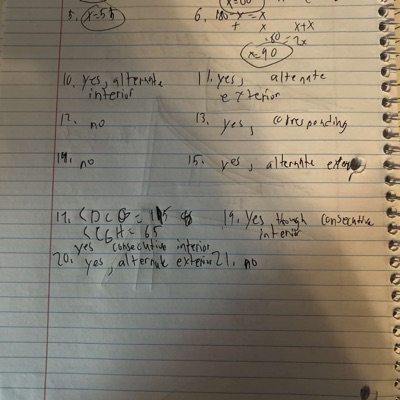 5. x=55
6. 180-x=x
+x x+x
180=2x
x=90
10. yes, alternate interior
11. yes, alternate exterior
12. no
13. yes, corresponding
14. no
15. yes, alternate
17. <DCG = 115
<CGH = 65
yes consecutive interior
19. yes though consecutive interior
20. yes, alternate exterior
21. no